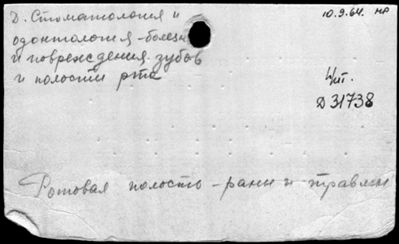 Д. Стоматология и
10.9.64. нр
одонтология - болезн
и повреждения зубов
и полости рта
Шт.
Д 31738
Ротовая полость - раны и травмы